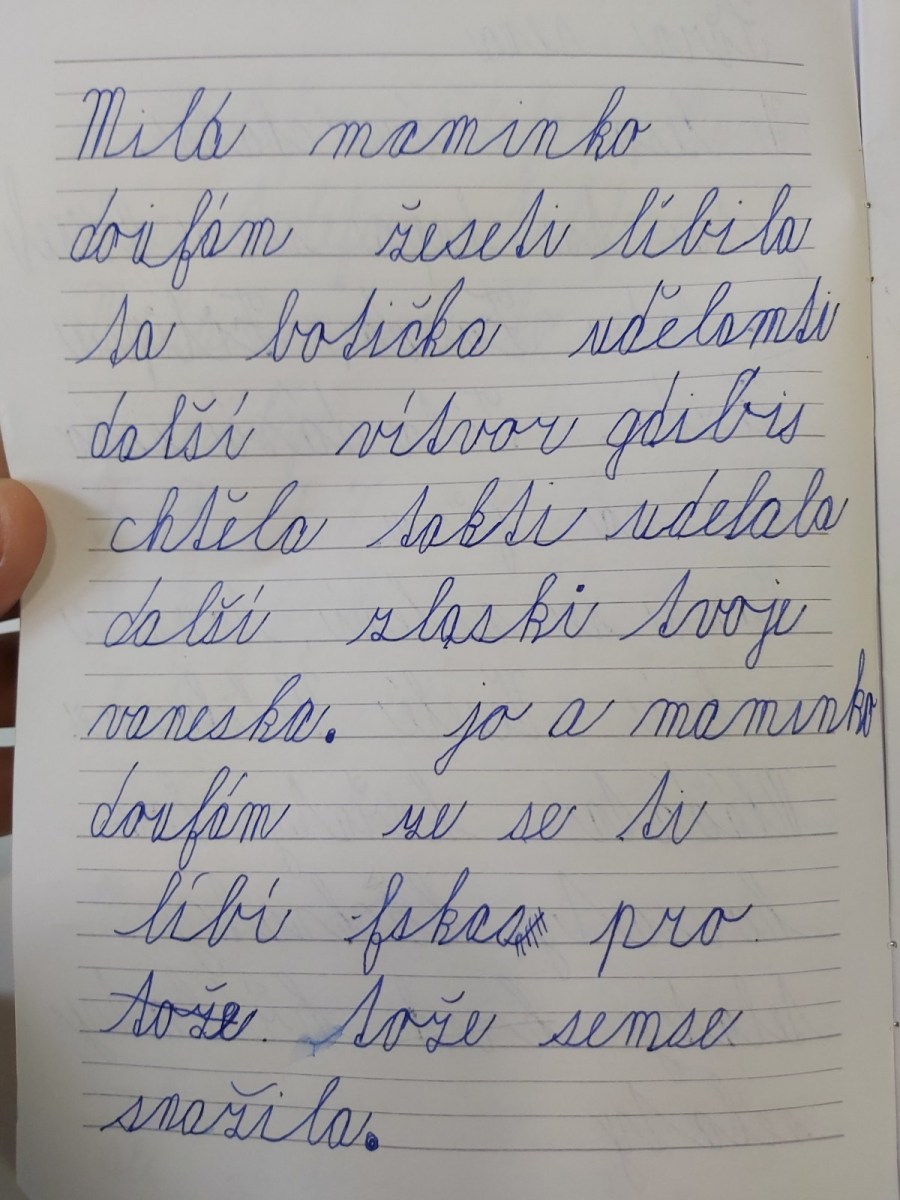 Milá maminko
doufám žeseti líbila
ta botička uďělamti
další vítvor gdibis
chtěla takti udelala
další zlaski tvoje
vaneska. jo a maminko
doufám ze se ti
líbí fskas pro
tože. tože semse
snažila.